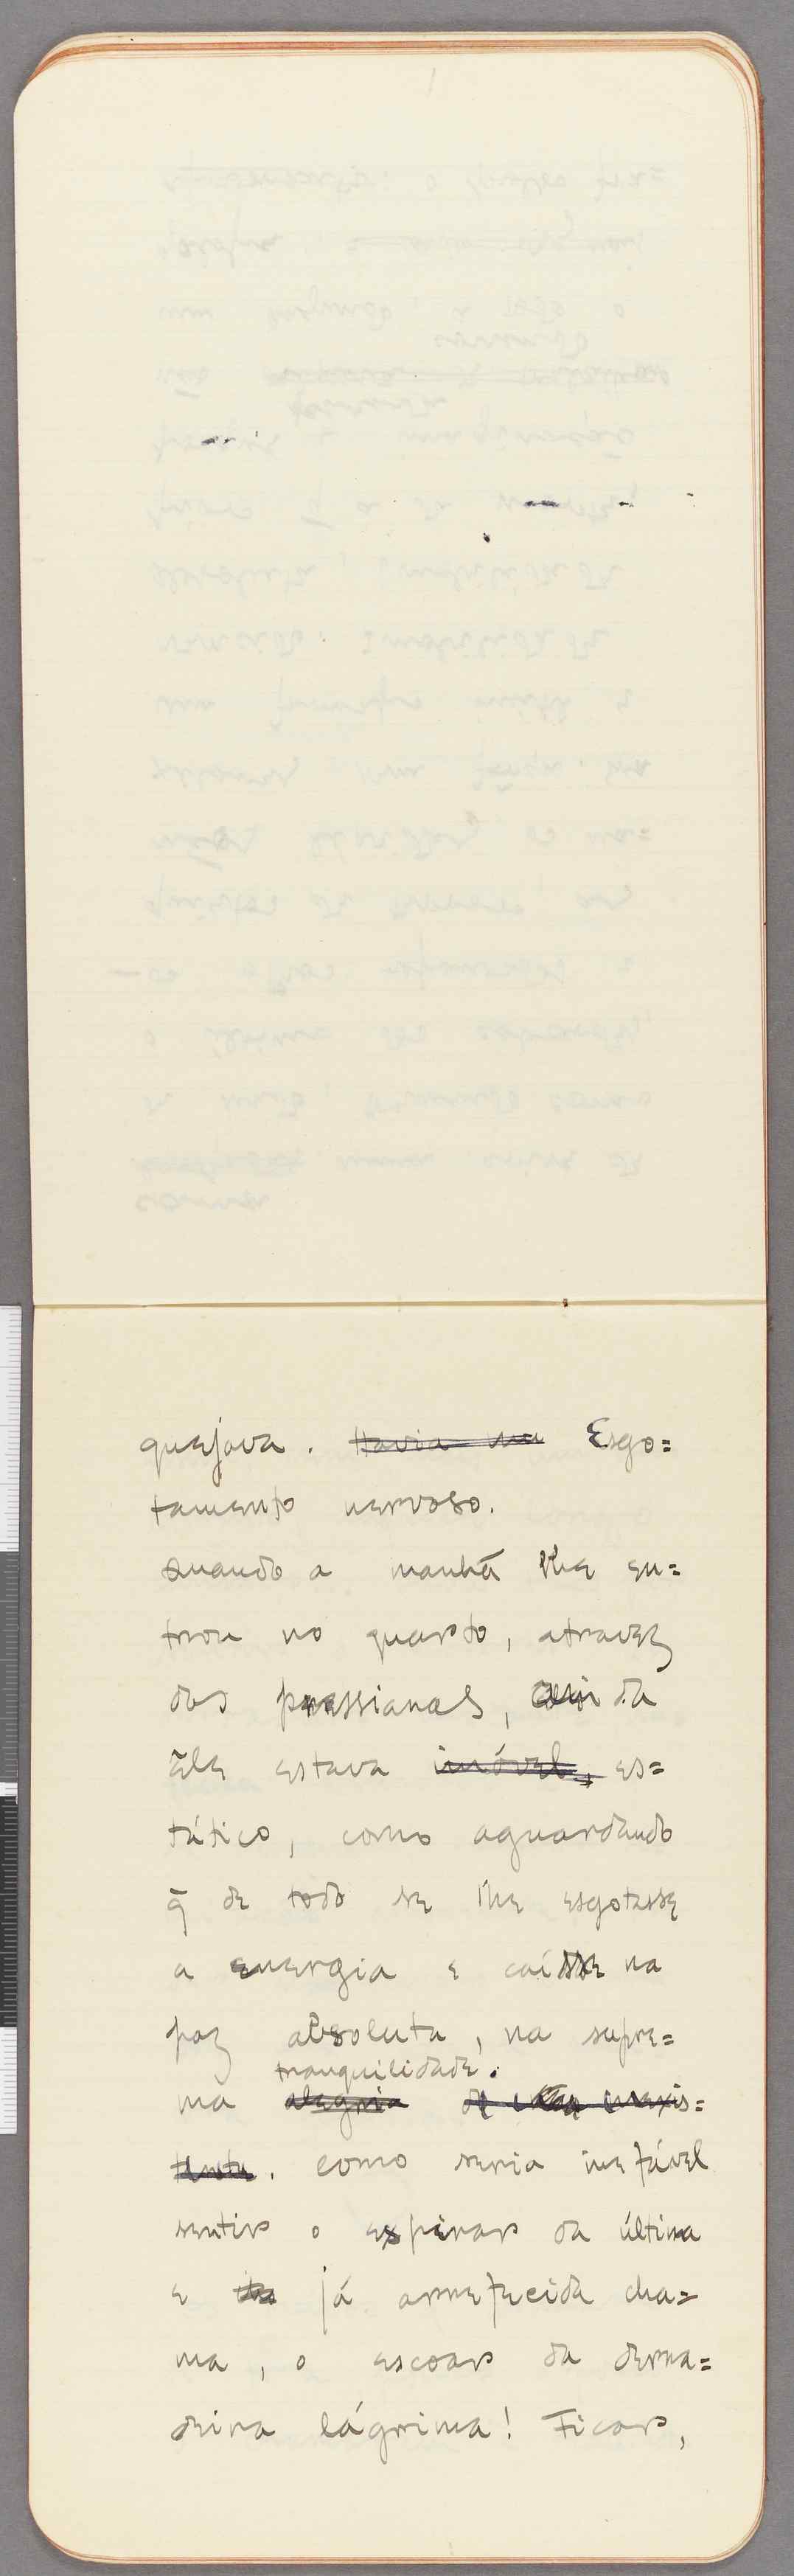 quejava. Havia um Esgo=
tamento nervoso.
Quando a manhã lhe en=
trou no quarto, atravez
das pressianas, ainda
êle estava imóvel, es=
tático, como aguardando
q̃ de todo se lhe esgotasse
a energia e caísse na
paz absoluta, na supre=
tranquilidade.
ma alegria de inexis=
tente. Como seria inefável
sentir o expirar da última
e já arrefecida cha=
ma, o escoar da derra=
deira lágrima! Ficar,